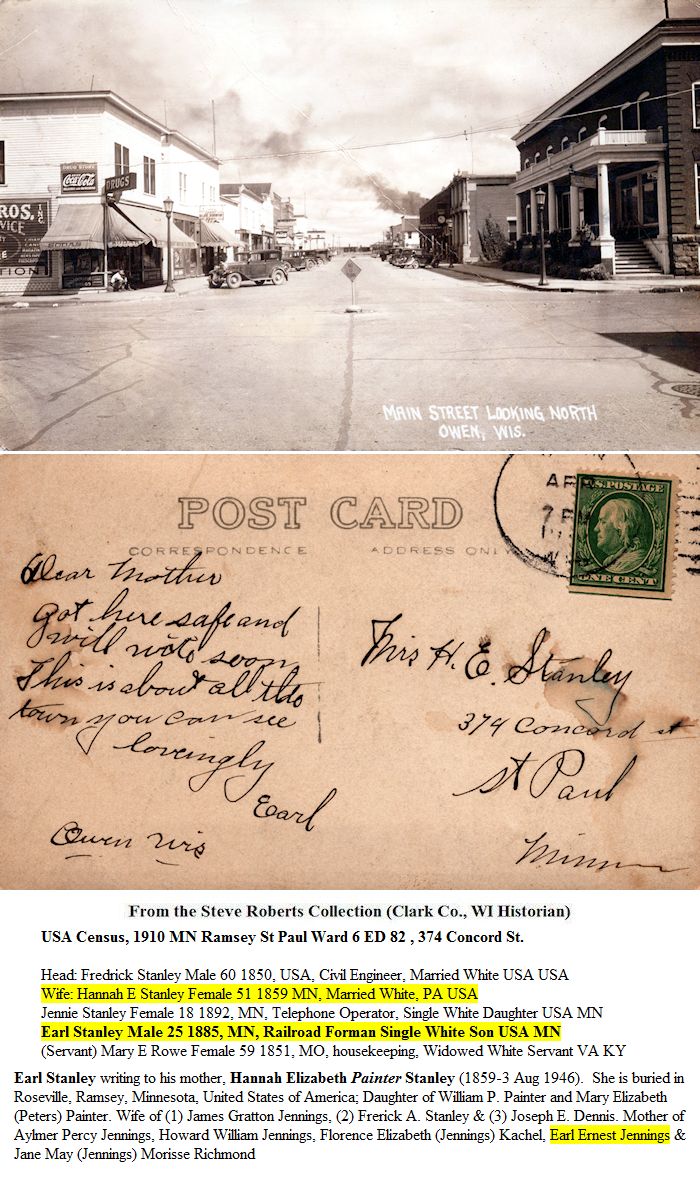 DRUG STORE
Coca-Cola
DRUGS
ROS.
INC
VICE
TION
MAIN STREET LOOKING NORTH
OWEN, WIS.
POST CARD
CORRESPONDENCE
ADDRESS ONLY
U.S. POSTAGE
ONE CENT
Dear Mother
got here safe and
will write soon
This is about all the
town you can see
loveingly
Earl
Owen Wis
Mrs H. E. Stanley
374 Concord st
St Paul
Minn
From the Steve Roberts Collection (Clark Co., WI Historian)
USA Census, 1910 MN Ramsey St Paul Ward 6 ED 82 , 374 Concord St.
Head: Fredrick Stanley Male 60 1850, USA, Civil Engineer, Married White USA USA
Wife: Hannah E Stanley Female 51 1859 MN, Married White, PA USA
Jennie Stanley Female 18 1892, MN, Telephone Operator, Single White Daughter USA MN
Earl Stanley Male 25 1885, MN, Railroad Forman Single White Son USA MN
(Servant) Mary E Rowe Female 59 1851, MO, housekeeping, Widowed White Servant VA KY
Earl Stanley writing to his mother, Hannah Elizabeth Painter Stanley (1859-3 Aug 1946).  She is buried in
Roseville, Ramsey, Minnesota, United States of America; Daughter of William P. Painter and Mary Elizabeth
(Peters) Painter. Wife of (1) James Gratton Jennings, (2) Frerick A. Stanley & (3) Joseph E. Dennis. Mother of
Aylmer Percy Jennings, Howard William Jennings, Florence Elizabeth (Jennings) Kachel, Earl Ernest Jennings &
Jane May (Jennings) Morisse Richmond